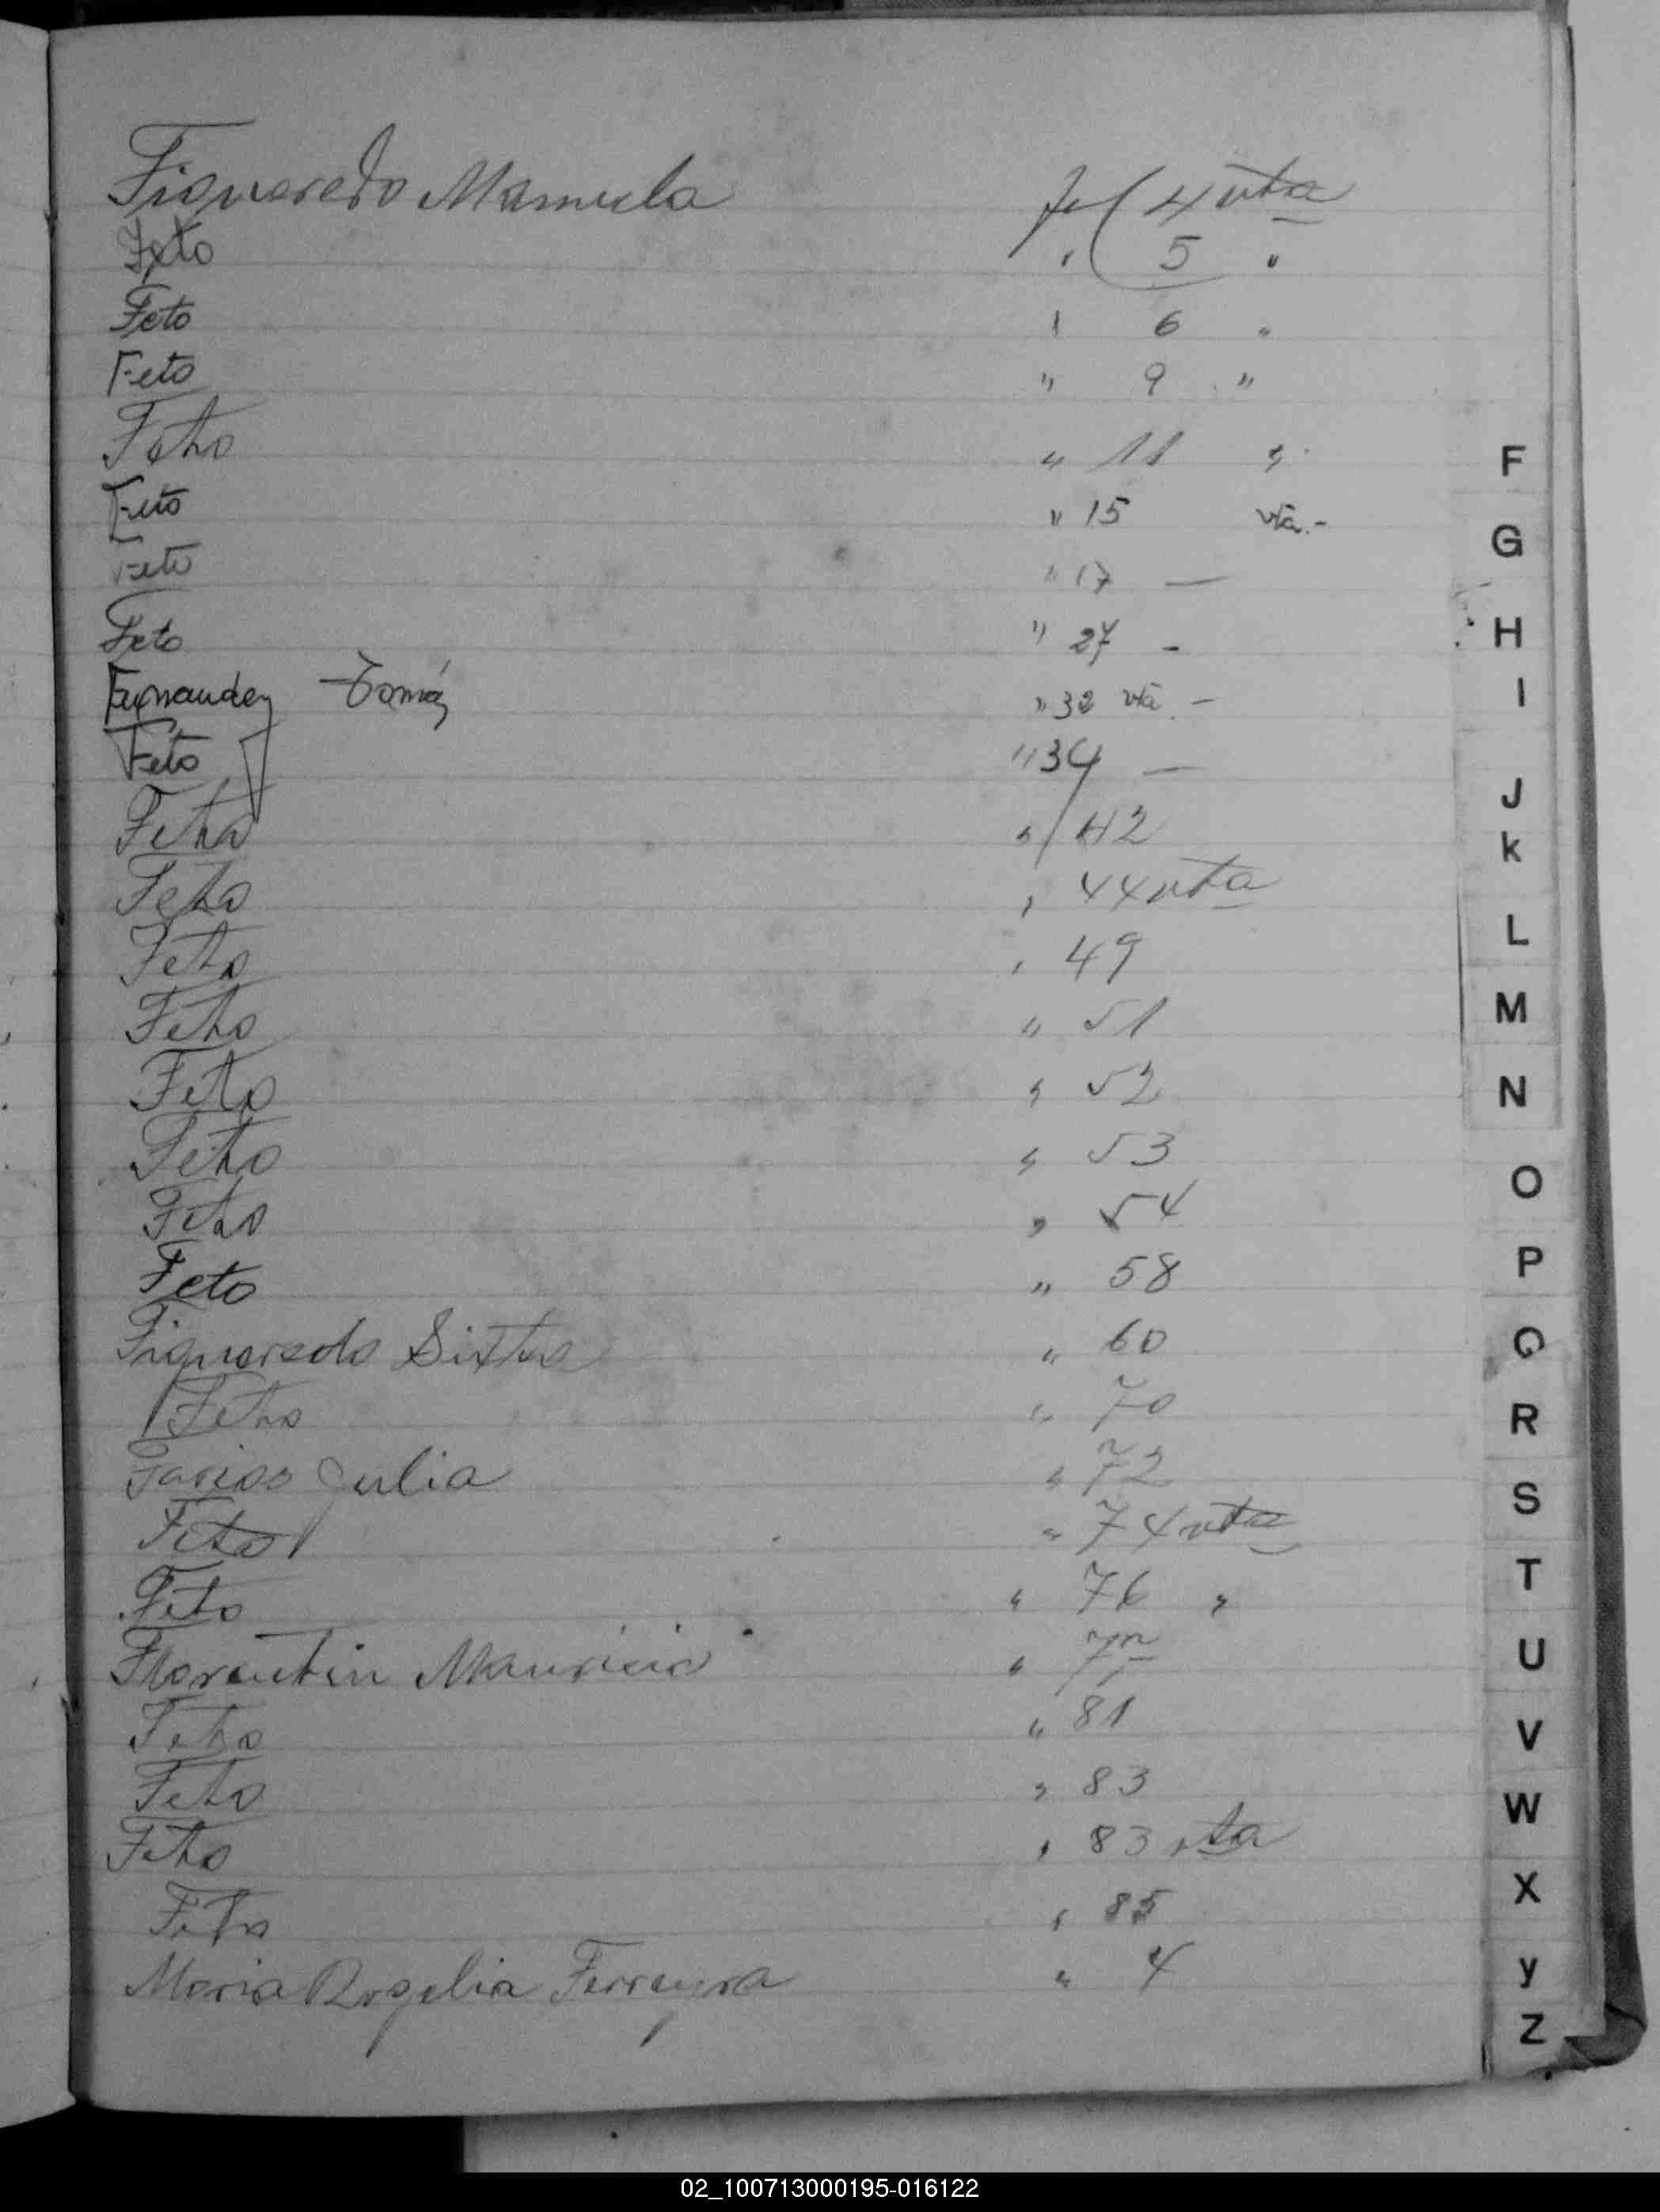 Figueredo Manuela fol 4 vta
Feto " 5 "
Feto " 6 "
Feto " 9 "
Feto " 11 "
Feto " 15 vta.-
Feto " 17 —
Feto " 27 -
Fernandez Tomás " 32 vta. -
Feto " 34 —
Feto " 42
Feto " 44 vta
Feto " 49
Feto " 51
Feto " 52
Feto " 53
Feto " 54
Feto " 58
Figueredo Sixta " 60
Feto " 70
Julia " 72
Feto " 74 vta
Feto " 76 "
Florentin Mauricio " 77
Feto " 81
Feto " 83
Feto " 83 vta
Feto " 85
Maria Rogelia Ferreyra " 4
F
G
H
I
J
k
L
M
N
O
P
Q
R
S
T
U
V
W
X
y
Z
02_100713000195-016122